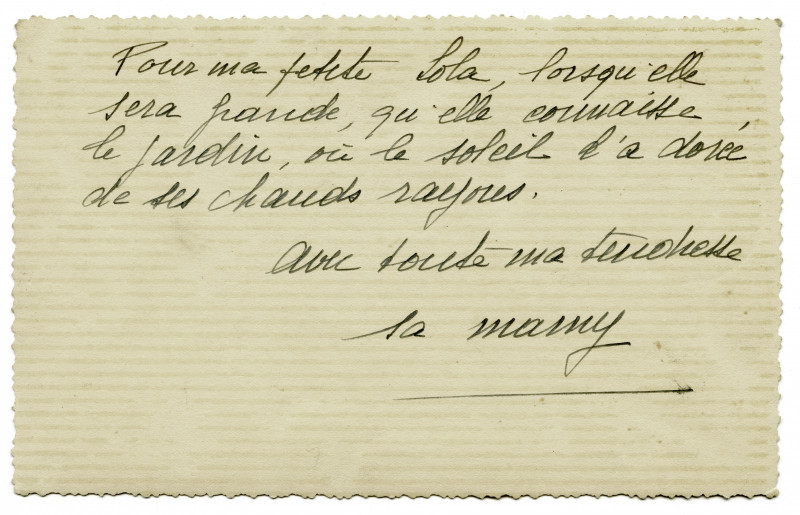 Pour ma petite Lola, lorsqu'elle
sera grande, qu'elle connaisse
le jardin, où le soleil l'a dorée
de ses chauds rayons.
avec toute ma tendresse
sa mamy